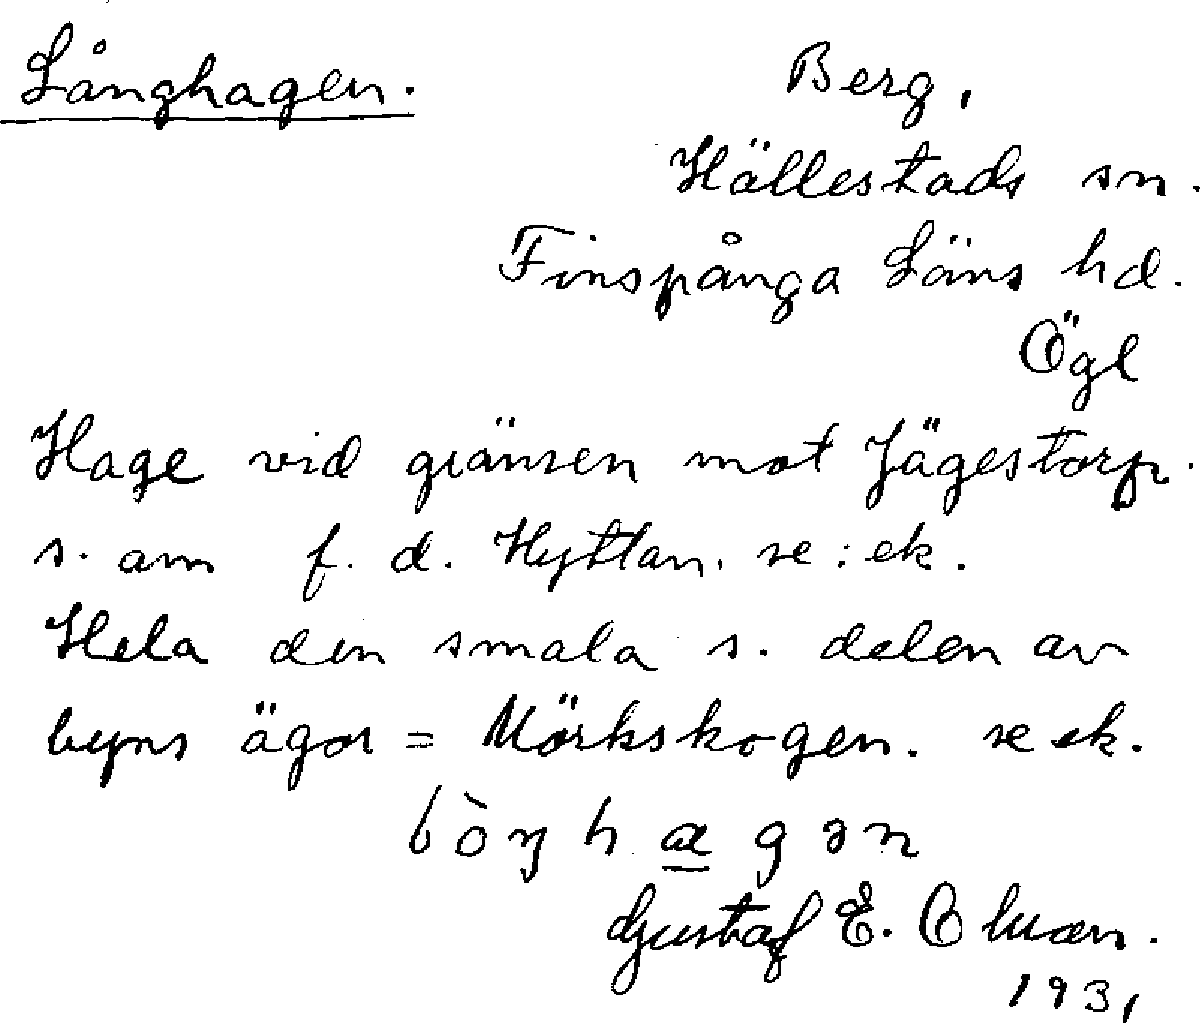 Långhagen.
Berg,
Hällestads sn.
Finspånga Läns hd.
Ögl
Hage vid gränsen mot Jägestorp.
s. om f. d. Hyttan. se: ek.
Hela den smala s. delen av
byns ägor = Mörkskogen. se ek.
Gustaf E.
1931